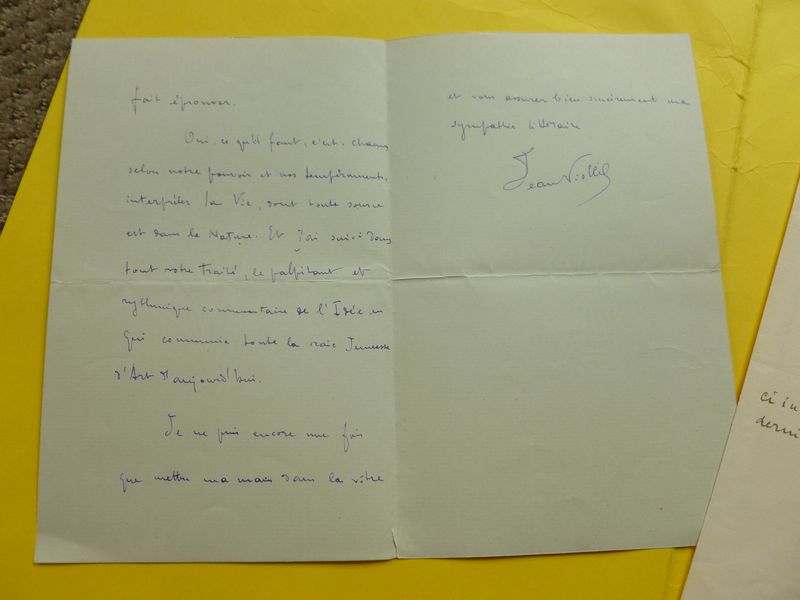 fait éprouver.
Oui, ce qu'il faut, c'est, chacun
selon notre pouvoir et nos tempéraments,
interpréter la Vie, dont toute source
est dans la Nature. Et j'ai suivi dans
tout votre Traité, le palpitant et
rythmique commentaire de l'Idée en
qui communie toute la vraie Jeunesse
d'Art d'aujourd'hui.
Je ne puis encore une fois
que mettre ma main dans la vôtre
et vous assurer bien sincèrement ma
sympathie littéraire
Jean Viollis
ci su
derni